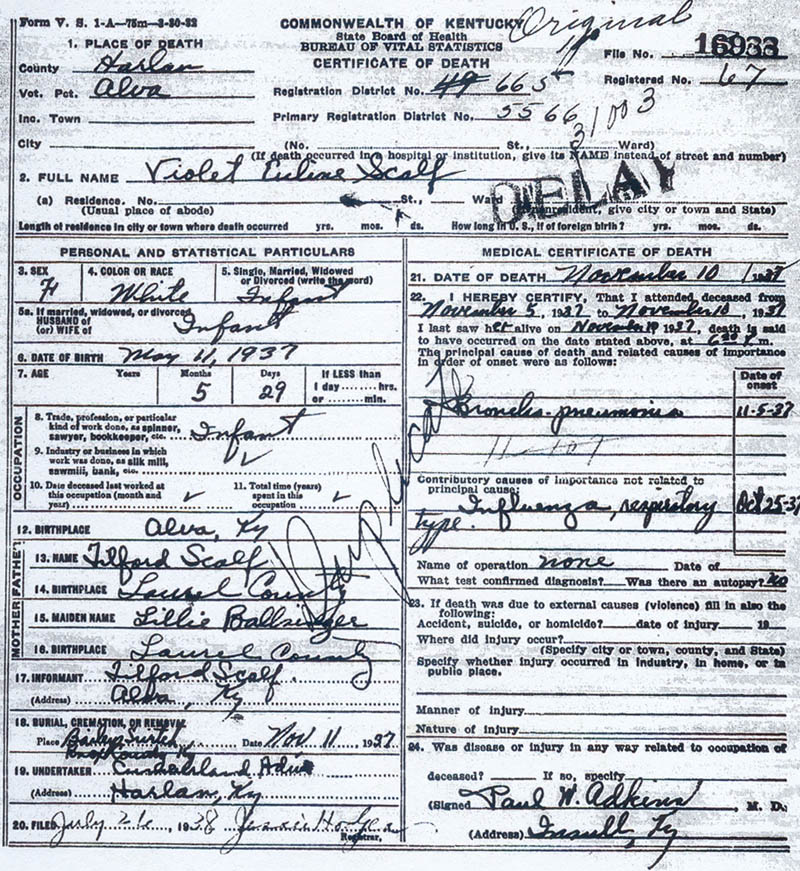 Form V. S. 1-A—75m—3-30-32
COMMONWEALTH OF KENTUCKY
Original
State Board of Health
BUREAU OF VITAL STATISTICS
CERTIFICATE OF DEATH
File No. 16933
Registered No. 67
1. PLACE OF DEATH
County Harlan
Vot. Pct. Alva
Inc. Town
City
Registration District No. 49 665
Primary Registration District No. 5566
31003
(No. St., Ward)
(If death occurred in a hospital or institution, give its NAME instead of street and number)
2. FULL NAME Violet Euline Scalf
DELAY
(a) Residence. No. St., Ward
(Usual place of abode) nonresident, give city or town and State)
Length of residence in city or town where death occurred yrs. mos. ds. How long in U. S., if of foreign birth? yrs. mos. ds.
PERSONAL AND STATISTICAL PARTICULARS
3. SEX F
4. COLOR OR RACE White
5. Single, Married, Widowed or Divorced (write the word) Infant
5a. If married, widowed, or divorced
HUSBAND of
(or) WIFE of Infant
6. DATE OF BIRTH May 11, 1937
7. AGE Years Months Days If LESS than
5 29 1 day hrs.
or min.
OCCUPATION
8. Trade, profession, or particular
kind of work done, as spinner,
sawyer, bookkeeper, etc. Infant
9. Industry or business in which
work was done, as silk mill,
sawmill, bank, etc. ✓
10. Date deceased last worked at
this occupation (month and
year) ✓
11. Total time (years)
spent in this
occupation ✓
12. BIRTHPLACE Alva, Ky
FATHER
13. NAME Tilford Scalf
14. BIRTHPLACE Laurel County
MOTHER
15. MAIDEN NAME Lillie
16. BIRTHPLACE Laurel County
17. INFORMANT Tilford Scalf.
(Address) Alva, Ky
18. BURIAL, CREMATION, OR REMOVAL
Place Date Nov 11, 1937
19. UNDERTAKER Cumberland
(Address) Harlan, Ky
20. FILED July 26, 1938
Registrar.
Duplicate
MEDICAL CERTIFICATE OF DEATH
21. DATE OF DEATH November 10, 1937
22. I HEREBY CERTIFY, That I attended deceased from
November 5, 1937 to November 10, 1937
I last saw her alive on November 10 1937, death is said
to have occurred on the date stated above, at m.
The principal cause of death and related causes of importance
in order of onset were as follows:
Date of
onset
Broncho-pneumonia 11-5-37
11-107
Contributory causes of importance not related to
principal cause:
Influenza, respiratory Oct 25-37
type.
Name of operation none Date of
What test confirmed diagnosis? Was there an autopsy? No
23. If death was due to external causes (violence) fill in also the
following:
Accident, suicide, or homicide? date of injury 19
Where did injury occur?
(Specify city or town, county, and State)
Specify whether injury occurred in industry, in home, or in
public place.
Manner of injury
Nature of injury
24. Was disease or injury in any way related to occupation of
deceased? If so, specify
(Signed Paul W. Adkins, M. D.
(Address) Insull, Ky